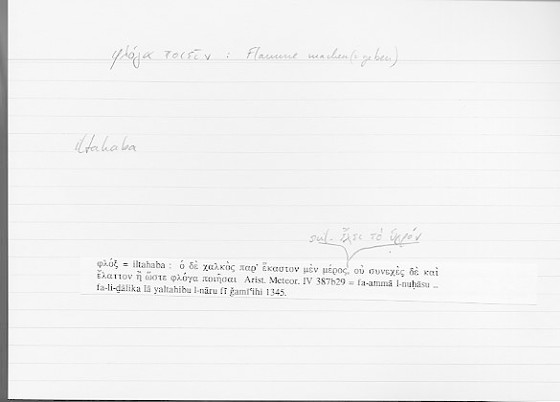 φλόγα ποιεῖν : Flamme machen (: geben)
iltahaba
scil. ἔχει τὸ ὑγρόν
φλόξ = iltahaba : ὁ δὲ χαλκὸς παρ' ἕκαστον μὲν μέρος, οὐ συνεχὲς δὲ καὶ
ἔλαττον ἢ ὥστε φλόγα ποιῆσαι Arist. Meteor. IV 387b29 = fa-ammā l-nuḥāsu ..
fa-li-ḏālika lā yaltahibu l-nāru fī ǧamīʿihi 1345.